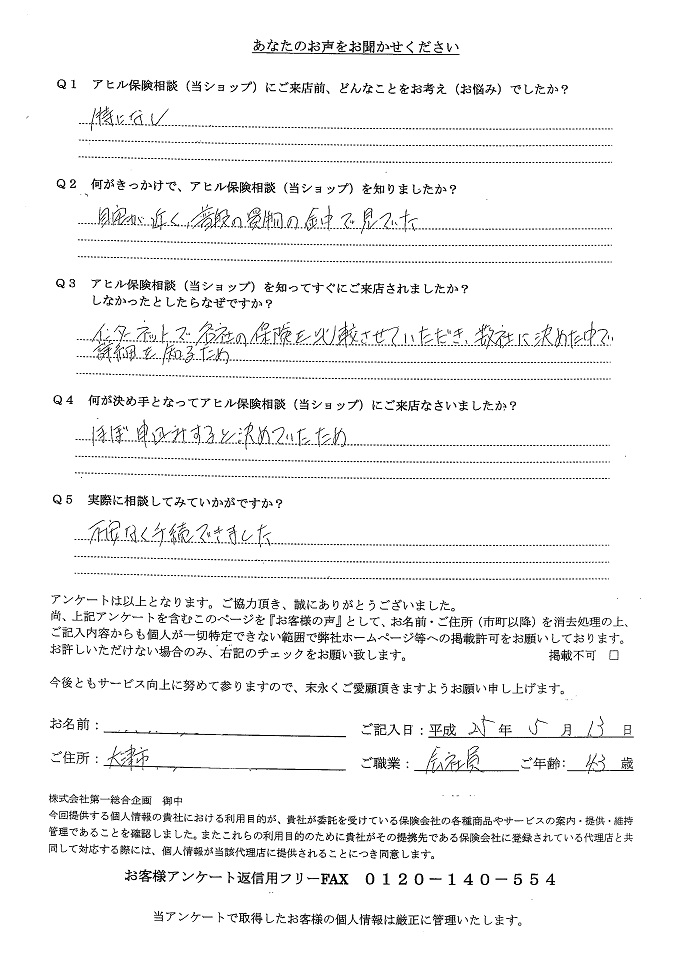 あなたのお声をお聞かせください
Q1 アヒル保険相談（当ショップ）にご来店前、どんなことをお考え（お悩み）でしたか？
特になし
Q2 何がきっかけで、アヒル保険相談（当ショップ）を知りましたか？
自宅が近く、普段の買物の途中で見ていた
Q3 アヒル保険相談（当ショップ）を知ってすぐにご来店されましたか？
しなかったとしたらなぜですか？
インターネットで各社の保険を比較させていただき、数社に決めた中で
詳細を知るため
Q4 何が決め手となってアヒル保険相談（当ショップ）にご来店なさいましたか？
ほぼ申込みすると決めていたため
Q5 実際に相談してみていかがですか？
なく手続できました
アンケートは以上となります。ご協力頂き、誠にありがとうございました。
尚、上記アンケートを含むこのページを『お客様の声』として、お名前・ご住所（市町以降）を消去処理の上、
ご記入内容からも個人が一切特定できない範囲で弊社ホームページ等への掲載許可をお願いしております。
お許しいただけない場合のみ、右記のチェックをお願い致します。 掲載不可 □
今後ともサービス向上に努めて参りますので、末永くご愛顧頂きますようお願い申し上げます。
お名前： ご記入日：平成 25 年 5 月 13 日
ご住所： 大津市 ご職業： 会社員 ご年齢： 43 歳
株式会社第一総合企画 御中
今回提供する個人情報の貴社における利用目的が、貴社が委託を受けている保険会社の各種商品やサービスの案内・提供・維持
管理であることを確認しました。またこれらの利用目的のために貴社がその提携先である保険会社に登録されている代理店と共
同して対応する際には、個人情報が当該代理店に提供されることにつき同意します。
お客様アンケート返信用フリーFAX 0120－140－554
当アンケートで取得したお客様の個人情報は厳正に管理いたします。